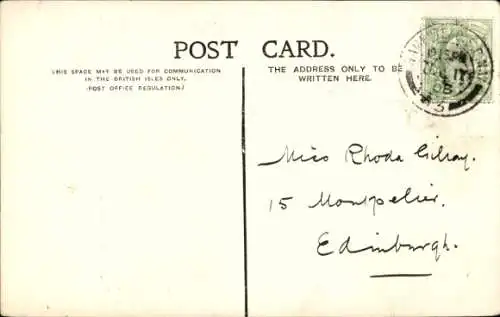 POST CARD.
THIS SPACE MAY BE USED FOR COMMUNICATION
IN THE BRITISH ISLES ONLY.
(POST OFFICE REGULATION)
THE ADDRESS ONLY TO BE
WRITTEN HERE.
Miss Rhoda Gilray.
15 Montpelier.
Edinburgh.